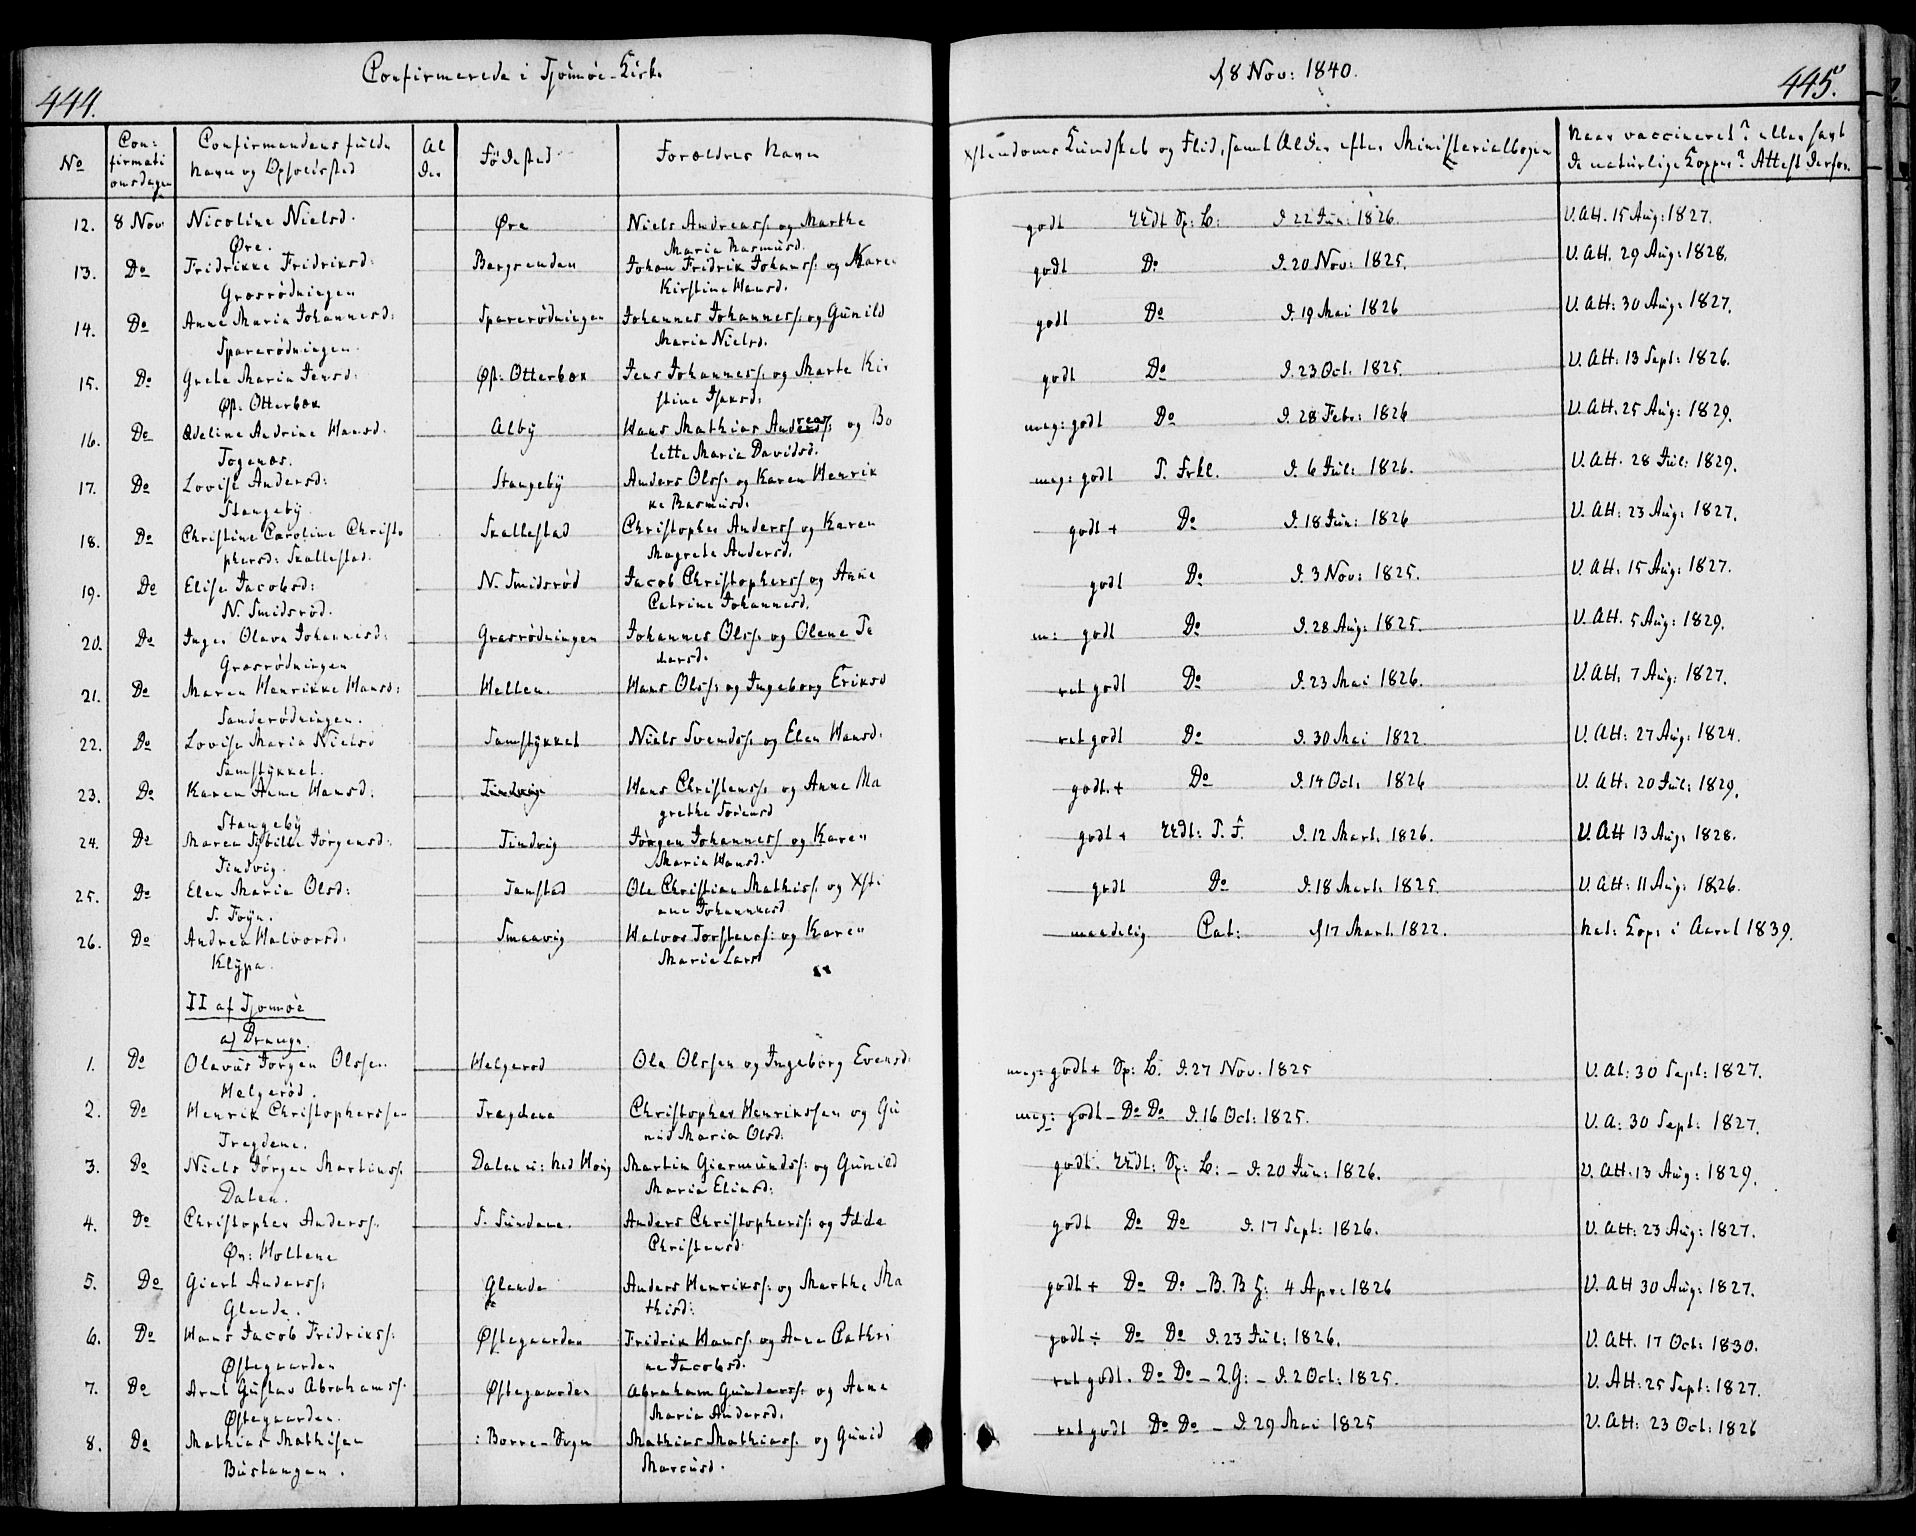 444.
Confirmerede i Tjømøe Kirke
d 8 Nov: 1840.
445.
No
Con:
firmati
onsdagen
Confirmandens fulde
Navn og Opholdssted
Al
der
Fødested
Forældres Navn
Xstendoms Kundskab og Flid, samt Alder efter Ministerialbogen
naar vaccineret? eller havt
de naturlige Kopper? Attest derfor.
12. 8 Nov Nicoline Nielsd. Øre Niels Andreass: og Marthe godt Sp: L: d. 22 Jun: 1826. V. Att. 15 Aug: 1827.
Øre. Maria Rasmusd.
13. Do Fridrikke Fridriksd: Bergsenden Johan Fridrik Johans: og Karen godt Do d. 20 Nov: 1825. V. Att. 29 Aug: 1828.
Græsrødningen Kirstine Hansd.
14. Do Anne Maria Johannesd: Sparerødningen Johannes Johanness: og Gunild godt Do d. 19 Mai 1826 V. Att: 30 Aug: 1827.
Sparerødningen. Maria Nielsd.
15. Do Grete Maria Jensd: Øst: Otterbæk Jens Johanness: og Marte Kir godt Do d. 23 Oct. 1825. V. Att: 13 Sept: 1826.
Øst: Otterbæk stine Isaksd:
16. Do Adeline Andrine Hansd. Alby Hans Mathias Andreass: og Bo meg: godt Do d. 28 Febr: 1826 V. Att. 25 Aug: 1829.
Togenæs. lette Maria Davidsd.
17. Do Lovise Andersd: Stangeby Anders Olss: og Karen Henrik meg: godt T. Frkl. d. 6 Jul: 1826. V. Att. 28 Jul: 1829.
Stangeby. ke Rasmusd.
18. Do Christine Caroline Christo Skallestad Christopher Anderss og Karen godt + Do d. 18 Jun: 1826 V. Att: 23 Aug: 1827.
phersd: Skallestad. Magrete Andersd.
19. Do Elise Jacobsd: N. Smidsrød Jacob Christophers: og Anne godt Do d. 3 Nov: 1825. V. Att: 15 Aug: 1827.
N. Smidsrød. Catrine Johannesd.
20. Do Inger Olava Johannesd: Græsrødningen Johannes Olss: og Olene Pe m: godt Do d. 28 Aug: 1825. V. Att. 5 Aug: 1829.
Græsrødningen dersd.
21. Do Maren Henrikke Hansd: Holten. Hans Olss: og Ingeborg Eriksd ret godt Do d. 23 Mai 1826. V. Att. 7 Aug: 1827.
Sanderødningen.
22. Do Lovise Maria Nielsd Samstykket Niels Svends: og Elen Hansd. ret godt Do d. 30 Mai 1822. V. Att: 27 Aug: 1824.
Samstykket.
23. Do Karen Anne Hansd. Tindvig Hans Christens: og Anne Ma godt. + Do d. 14 Oct: 1826 V. Att: 20 Jul: 1829.
Stangeby grethe Sørensd
24. Do Maren Sibille Jørgensd: Tindvig Jørgen Johanness: og Karen godt + T. F. d. 12 Mart. 1826. V. Att 13 Aug: 1828.
Tindvig. Maria Hansd.
25. Do Elen Maria Olsd: Tanstad Ole Christian Mathiss: og Xsti godt Do d. 18 Mart. 1825. V. Att: 11 Aug: 1826.
S. Føyn. ane Johannesd
26. Do Andrea Halvorsd: Smaavig Halvor Torstens: og Karen maadelig Cat: d 17 Mart. 1822. nat: Kop: i Aaret 1839.
Klypa. Marie Larsd
II af Tjømøe
a) Drenge.
1. Do Olavus Jørgen Olssen Helgerød Ole Olssen og Ingeborg Evensd: meg: godt + Sp: L. d. 27 Nov. 1825 V. At: 30 Sept: 1827.
Helgerød.
2. Do Henrik Christopherssen Trægdene Christopher Henrikssen og Gu meg: godt – Do Do d. 16 Oct: 1825. V. A: 30 Sept: 1827.
Trægdene. nild Maria Olsd.
3. Do Niels Jørgen Martinss: Dalen Martin Giermunds: og Gunild godt. Sp: L: – d. 20 Jun: 1826. V. Att: 13 Aug: 1829.
Dalen. Maria Eliasd:
4. Do Christopher Anderss. S. Sundene. Anders Christophers: og Idde godt Do Do d. 17 Sept: 1826. V. Att: 23 Aug: 1827.
Øv: Holtene Christensd
5. Do Giert Anderss: Glende Anders Henrikss: og Marthe Ma godt + Do Do – B. B G: 4 Apr: 1826 V. Att 30 Aug: 1827.
Glende. thisd:
6. Do Hans Jacob Fridrikss: Østegaarden Fridrik Hanss: og Anne Cathri godt ÷ Do Do d. 23 Jul: 1826. V. Att. 17 Oct: 1830.
Østegaarden ne Jacobsd.
7. Do Arnt Gustav Abrahamss. Østegaarden Abraham Gunderss: og Anne ret godt. Do Do – 2 G: – d. 2 Oct: 1825. V. Att: 25 Sept: 1827.
Østegaarden. Maria Andersd.
8. Do Mathias Mathisen : Borre – Sogn Mathias Mathiass: og Gunild ret godt Do Do – d. 29 Mai 1825 V. Att: 23 Oct: 1826
Bustangen. Marcusd.